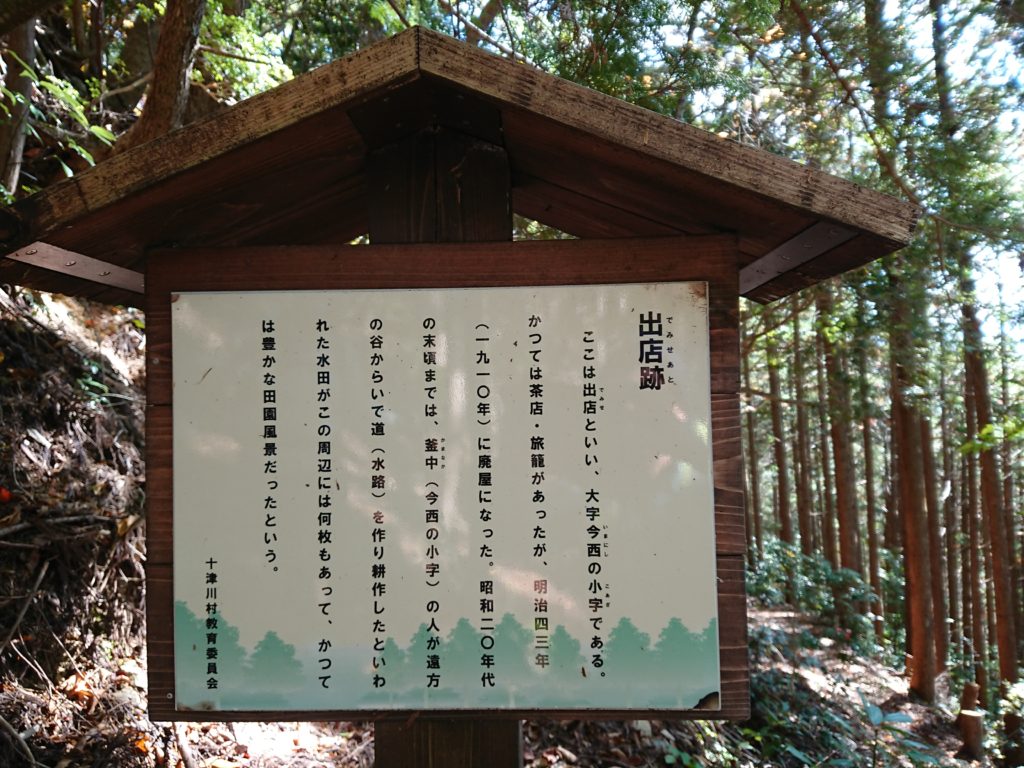 出店跡
でみせあと
ここは出店といい、大字今西の小字である。
でみせ
いまにし
こあざ
かつては茶店・旅籠があったが、明治四三年
（一九一〇年）に廃屋になった。昭和二〇年代
の末頃までは、釜中（今西の小字）の人が遠方
かまなか
の谷からいで道（水路）を作り耕作したといわ
れた水田がこの周辺には何枚もあって、かつて
は豊かな田園風景だったという。
十津川村教育委員会